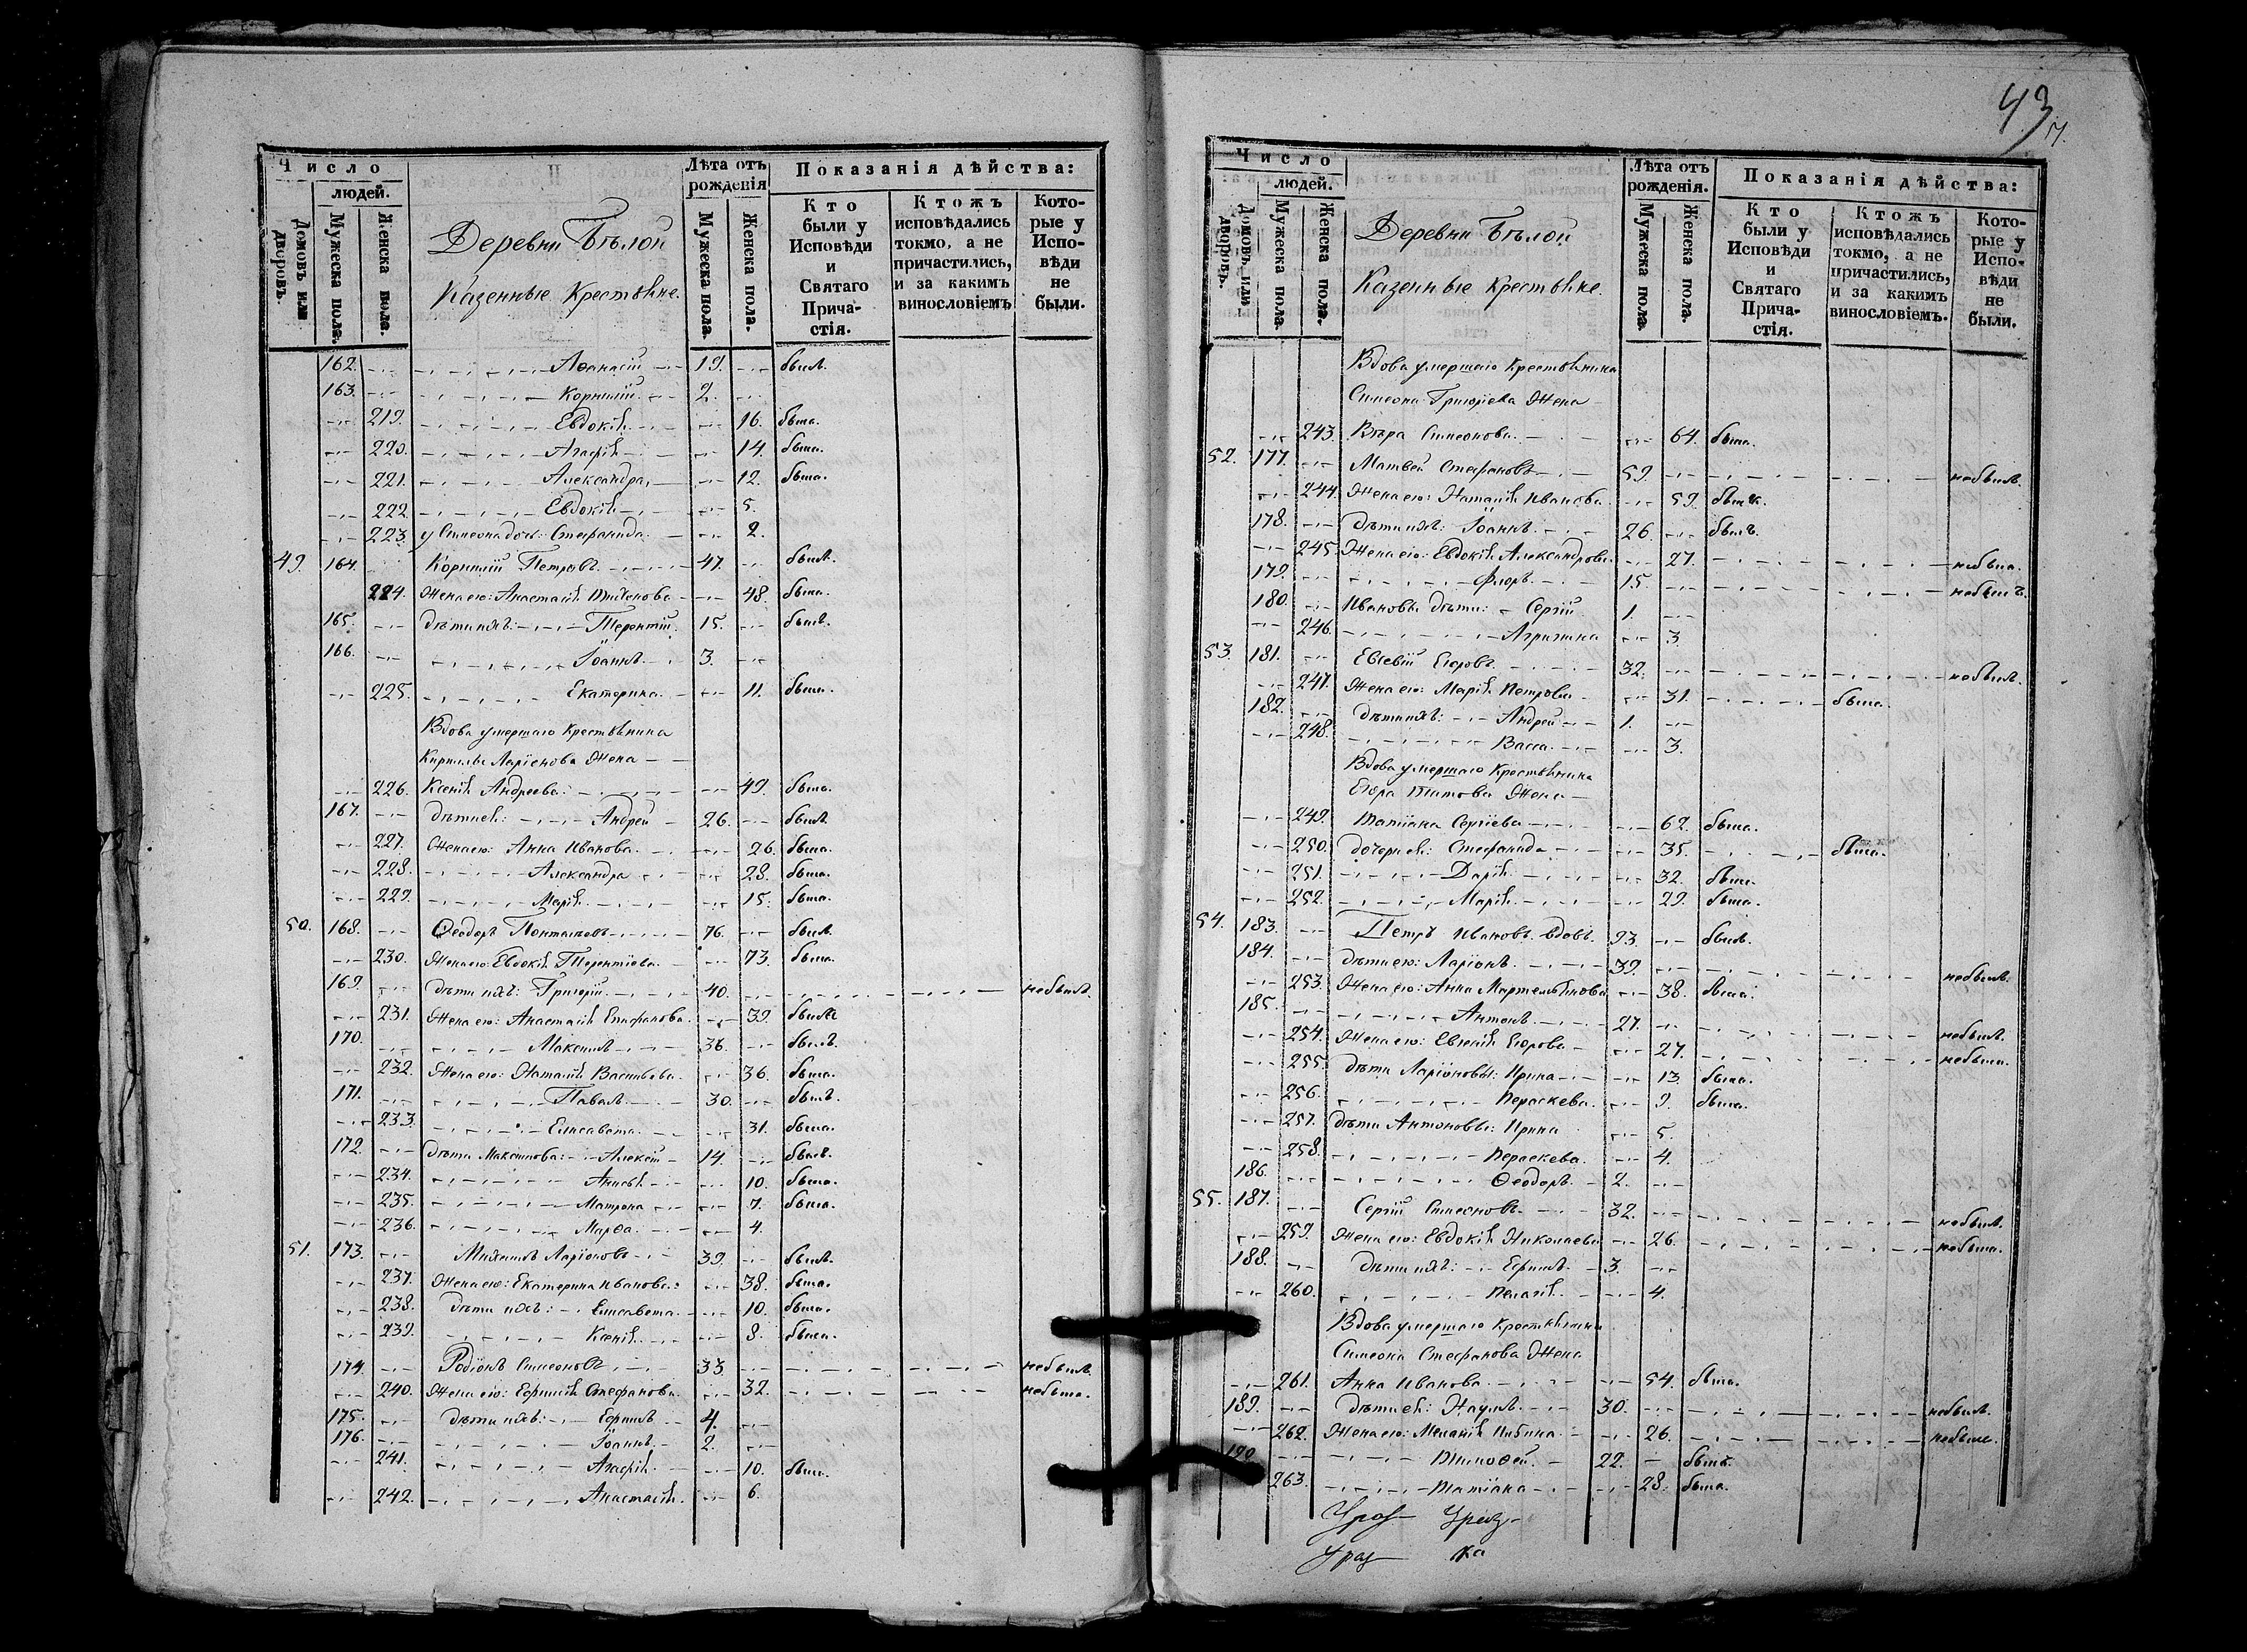 43
Число
людей.
Домовъ или дворовъ.
Мужеска пола.
Женска пола.
Деревни Бѣлой
Казенные Крестьяне.
Лѣта отъ рожденія
Мужеска пола.
Женска пола.
Показанія дѣйства:
Кто были у Исповѣди и Святаго Причастія.
Ктожъ исповѣдались токмо, а не причастились, и за какимъ винословіемъ
Которые у Исповѣди не были.
162. Аѳанасій 19. былъ.
163. Корнилій 2.
219. Евдокія 16. была.
220. Агафія 14. была.
221. Александра 12. была.
222. Евдокія 5.
223. у Симеона дочь: Стефанида 2.
49. 164. Корнилій Петровъ 47. былъ.
224. Жена его: Анастасія 48. была.
165. Дѣти ихъ: Терентій 15. былъ.
166. Іоаннъ 3.
225. Екатерина 11. была.
Вдова умершаго Крестьянина
Кирилы Ларіонова Жена
226. Ксенія Андреева 49. была.
167. Дѣти ея: Андрей 26. былъ
227. Жена его: Анна Иванова 26. была.
228. Александра 28. была.
229. Марія 15. была.
50. 168. Ѳеодоръ 76. былъ.
230. Жена его: Евдокія Терентіева 73. была.
169. Дѣти ихъ: Григорій 40. небылъ.
231. Жена его: Анастасія Епифанова 39. была
170. Максимъ 36. былъ.
232. Жена его: Наталія Васильева 36. была.
171. Павелъ 30. былъ.
233. Елисавета 31. была.
172. Дѣти Максимова: Алексій 14. былъ.
234. Анисія 10. была.
235. Матрона 7. была.
236. Марѳа 4.
51. 173. Михаилъ Ларіоновъ 39. былъ.
237. Жена его: Екатерина Иванова: 38. была.
238. Дѣти ихъ: Елисавета 10. была.
239. Ксенія 8. была.
174. Родіонъ Симеоновъ 33. небылъ.
240. Жена его: Ефимія Стефанова 32. небыла.
175. Дѣти ихъ: Ефимъ 4.
176. Іоаннъ 2.
241. Агафія 10. была.
242. Анастасія 6.
Число
людей.
Домовъ или дворовъ.
Мужеска пола.
Женска пола.
Деревни Бѣлой
Казенные Крестьяне.
Лѣта отъ рожденія.
Мужеска пола.
Женска пола.
Показанія дѣйства:
Кто были у Исповѣди и Святаго Причастія.
Ктожъ исповѣдались токмо, а не причастились, и за какимъ винословіемъ.
Которые у Исповѣди не были.
Вдова умершаго Крестьянина
Симеона Григорьева Жена
243. Вѣра Симеонова 64. была.
52. 177. Матвей Стефановъ 59. небылъ.
244. Жена его: Наталія Иванова 59. была.
178. Дѣти ихъ: Іоаннъ 26. былъ.
245. Жена его: Евдокія Александрова 27. небыла.
179. Флоръ 15. небылъ.
180. Ивановы дѣти: Сергій 1.
246. Агрипина 3.
53. 181. Евсевій Егоровъ 32. небылъ.
247. Жена его: Марія Петрова 31. была.
182. Дѣти ихъ: Андрей 1.
248. Васса 3.
Вдова умершаго Крестьянина
Егора Титова Жена
249. Татіана Сергіева 62. была.
250. Дочери ея: Стефанида 35. была.
251. Дарія 32. была.
252. Марія 29. была.
54. 183. Петръ Ивановъ вдовъ. 93. былъ.
184. Дѣти его: Ларіонъ 39. небылъ.
253. Жена его: Анна Мартемьянова 38. была.
185. Антонъ 27. небылъ.
254. Жена его: Евгенія Егорова 27. небыла.
255. Дѣти Ларіоновы: Ирина 13. была.
256. Параскева 9. была.
257. Дѣти Антоновы: Ирина 5.
258. Параскева 4.
186. Ѳеодоръ 2.
55. 187. Сергій Симеоновъ 32. небылъ.
259. Жена его: Евдокія Николаева 26. небыла.
188. Дѣти ихъ: Ефимъ 3.
260. Пелагія 4.
Вдова умершаго Крестьянина
Симеона Стефанова Жена
261. Анна Иванова 54. была.
189. Дѣти ея: Наумъ 30. небылъ.
262. Жена его: Меланія 26. небыла.
190 Тимоѳей 22. былъ.
263. Татіана 28. была.